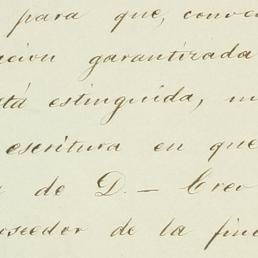 para que, conve
acion garantizada
tá estinguida, m
escritura en que
de D. — Creo
oseedor de la fin